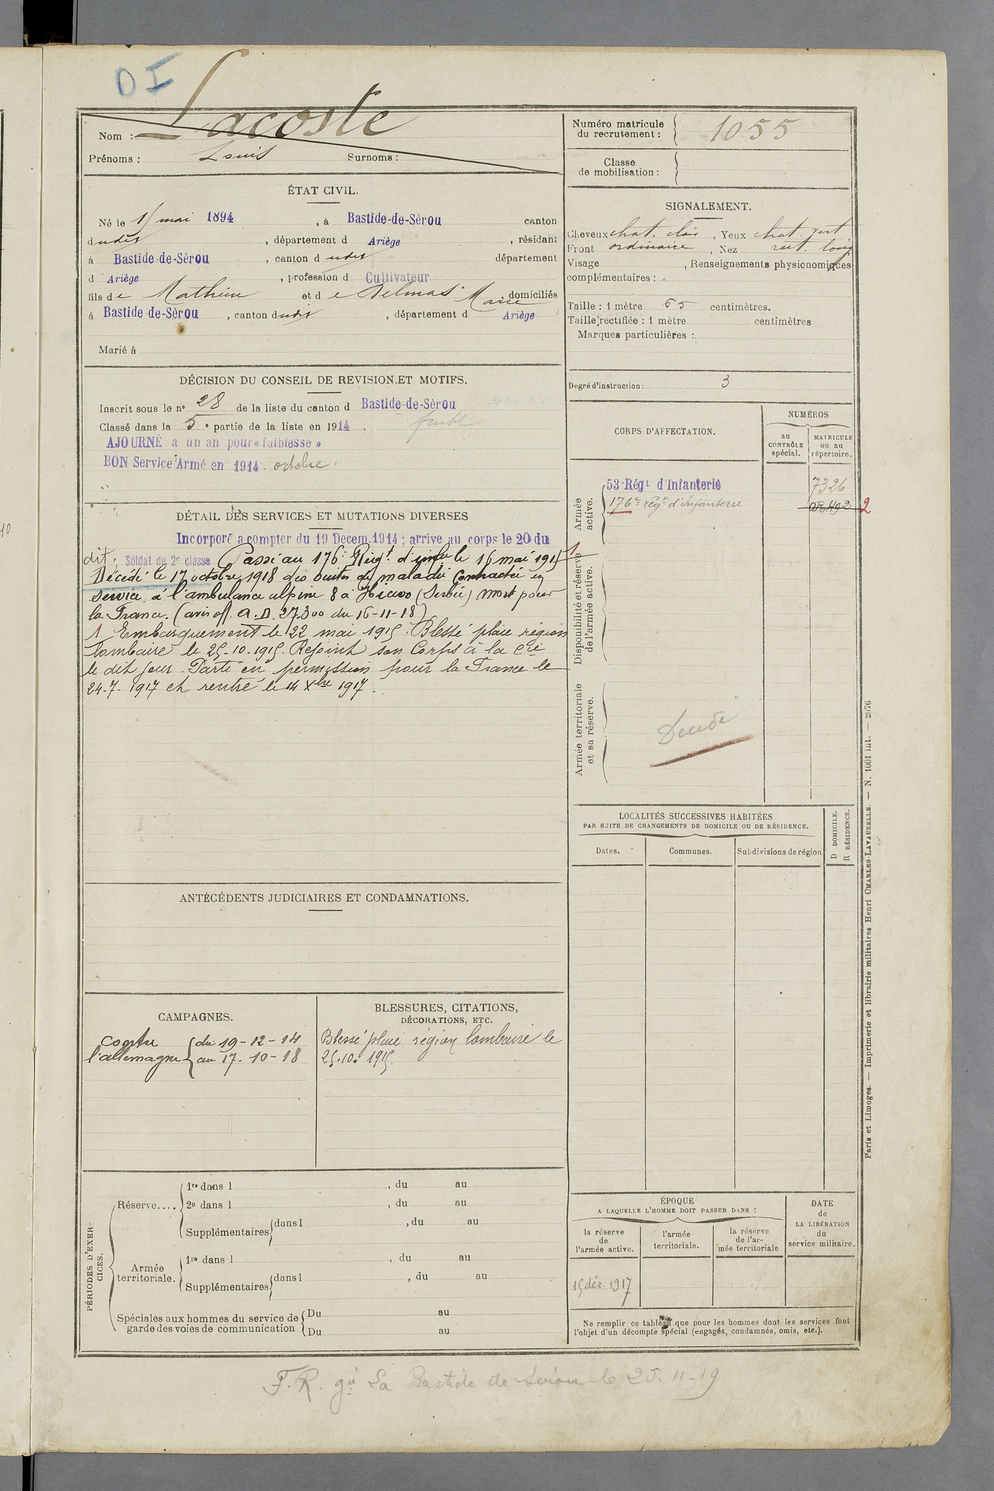 DI
Nom : Lacoste
Prénoms : Louis Surnoms :
Numéro matricule du recrutement : 1055
Classe de mobilisation :
ÉTAT CIVIL.
Né le 15 mai 1894, à Bastide-de-Sérou canton
dudit, département d Ariège, résidant
à Bastide-de-Sérou, canton d udit département
d Ariège, profession d Cultivateur
fils de Mathieu et de Delmas Marie domiciliés
à Bastide-de-Sérou, canton dudit, département d Ariège
Marié à
SIGNALEMENT.
Cheveux chat. clair, Yeux chat. vert
Front ordinaire, Nez rect. long
Visage , Renseignements physionomiques
complémentaires :
Taille : 1 mètre 55 centimètres.
Taille rectifiée : 1 mètre centimètres
Marques particulières :
Degré d'instruction : 3
DÉCISION DU CONSEIL DE REVISION ET MOTIFS.
Inscrit sous le n° 28 de la liste du canton d Bastide-de-Sérou
Classé dans la 5e partie de la liste en 1914.
AJOURNÉ à un an pour « faiblesse »
BON Service Armé en 1914 octobre.
CORPS D'AFFECTATION.
NUMÉROS
au CONTRÔLE spécial.
MATRICULE ou au répertoire.
Armée active.
53e Régt d'Infanterie 7326
176e régt d'infanterie
2
Disponibilité et réserve de l'armée active.
Armée territoriale et sa réserve.
Décédé
DÉTAIL DES SERVICES ET MUTATIONS DIVERSES
Incorporé à compter du 19 Décem. 1914 ; arrivé au corps le 20 du
dit. Soldat de 2e classe Passé au 176e Régt. d'infie le 16 mai 1915 1
Décédé le 17 octobre 1918 des suites de maladie contractée en
service, à l'ambulance alpine 8 à (Serbie) Mort pour
la France. (avis off. A.D. 27300 du 15-11-18)
1 Embarquement le 22 mai 1915. Blessé plaie région
lombaire le 25-10-1915. Rejoint son Corps à la Cie
le dit jour. Parti en permission pour la France le
24-7-1917 et rentré le 14 Xbre 1917.
LOCALITÉS SUCCESSIVES HABITÉES
PAR SUITE DE CHANGEMENTS DE DOMICILE OU DE RÉSIDENCE.
Dates. Communes. Subdivisions de région
D DOMICILE. R RÉSIDENCE.
ANTÉCÉDENTS JUDICIAIRES ET CONDAMNATIONS.
CAMPAGNES.
contre du 19-12-14
l'allemagne au 17-10-18
BLESSURES, CITATIONS,
DÉCORATIONS, ETC.
Blessé plaie région lombaire le
25.10.1915.
PÉRIODES D'EXERCICES.
Réserve....
1re dans l , du au
2e dans l , du au
Supplémentaires dans l , du au
Armée territoriale.
1re dans l , du au
Supplémentaires dans l , du au
Spéciales aux hommes du service de
garde des voies de communication
Du au
Du au
ÉPOQUE
A LAQUELLE L'HOMME DOIT PASSER DANS :
la réserve de l'armée active.
l'armée territoriale.
la réserve de l'armée territoriale
DATE de LA LIBÉRATION du service militaire.
15 déc. 1917
Ne remplir ce tableau que pour les hommes dont les services font
l'objet d'un décompte spécial (engagés, condamnés, omis, etc.).
Paris et Limoges. — Imprimerie et librairie militaires Henri CHARLES-LAVAUZELLE. — N. 1001 int. — 2/76
F.R. La Bastide de Sérou le 25-11-19